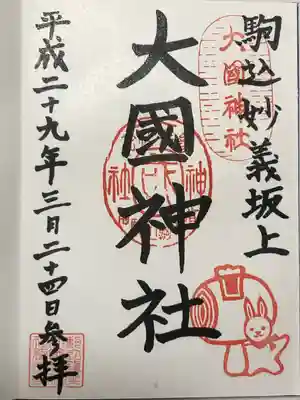 駒込妙義坂上
大國神社
大國神社
平成二十九年三月二十四日参拝